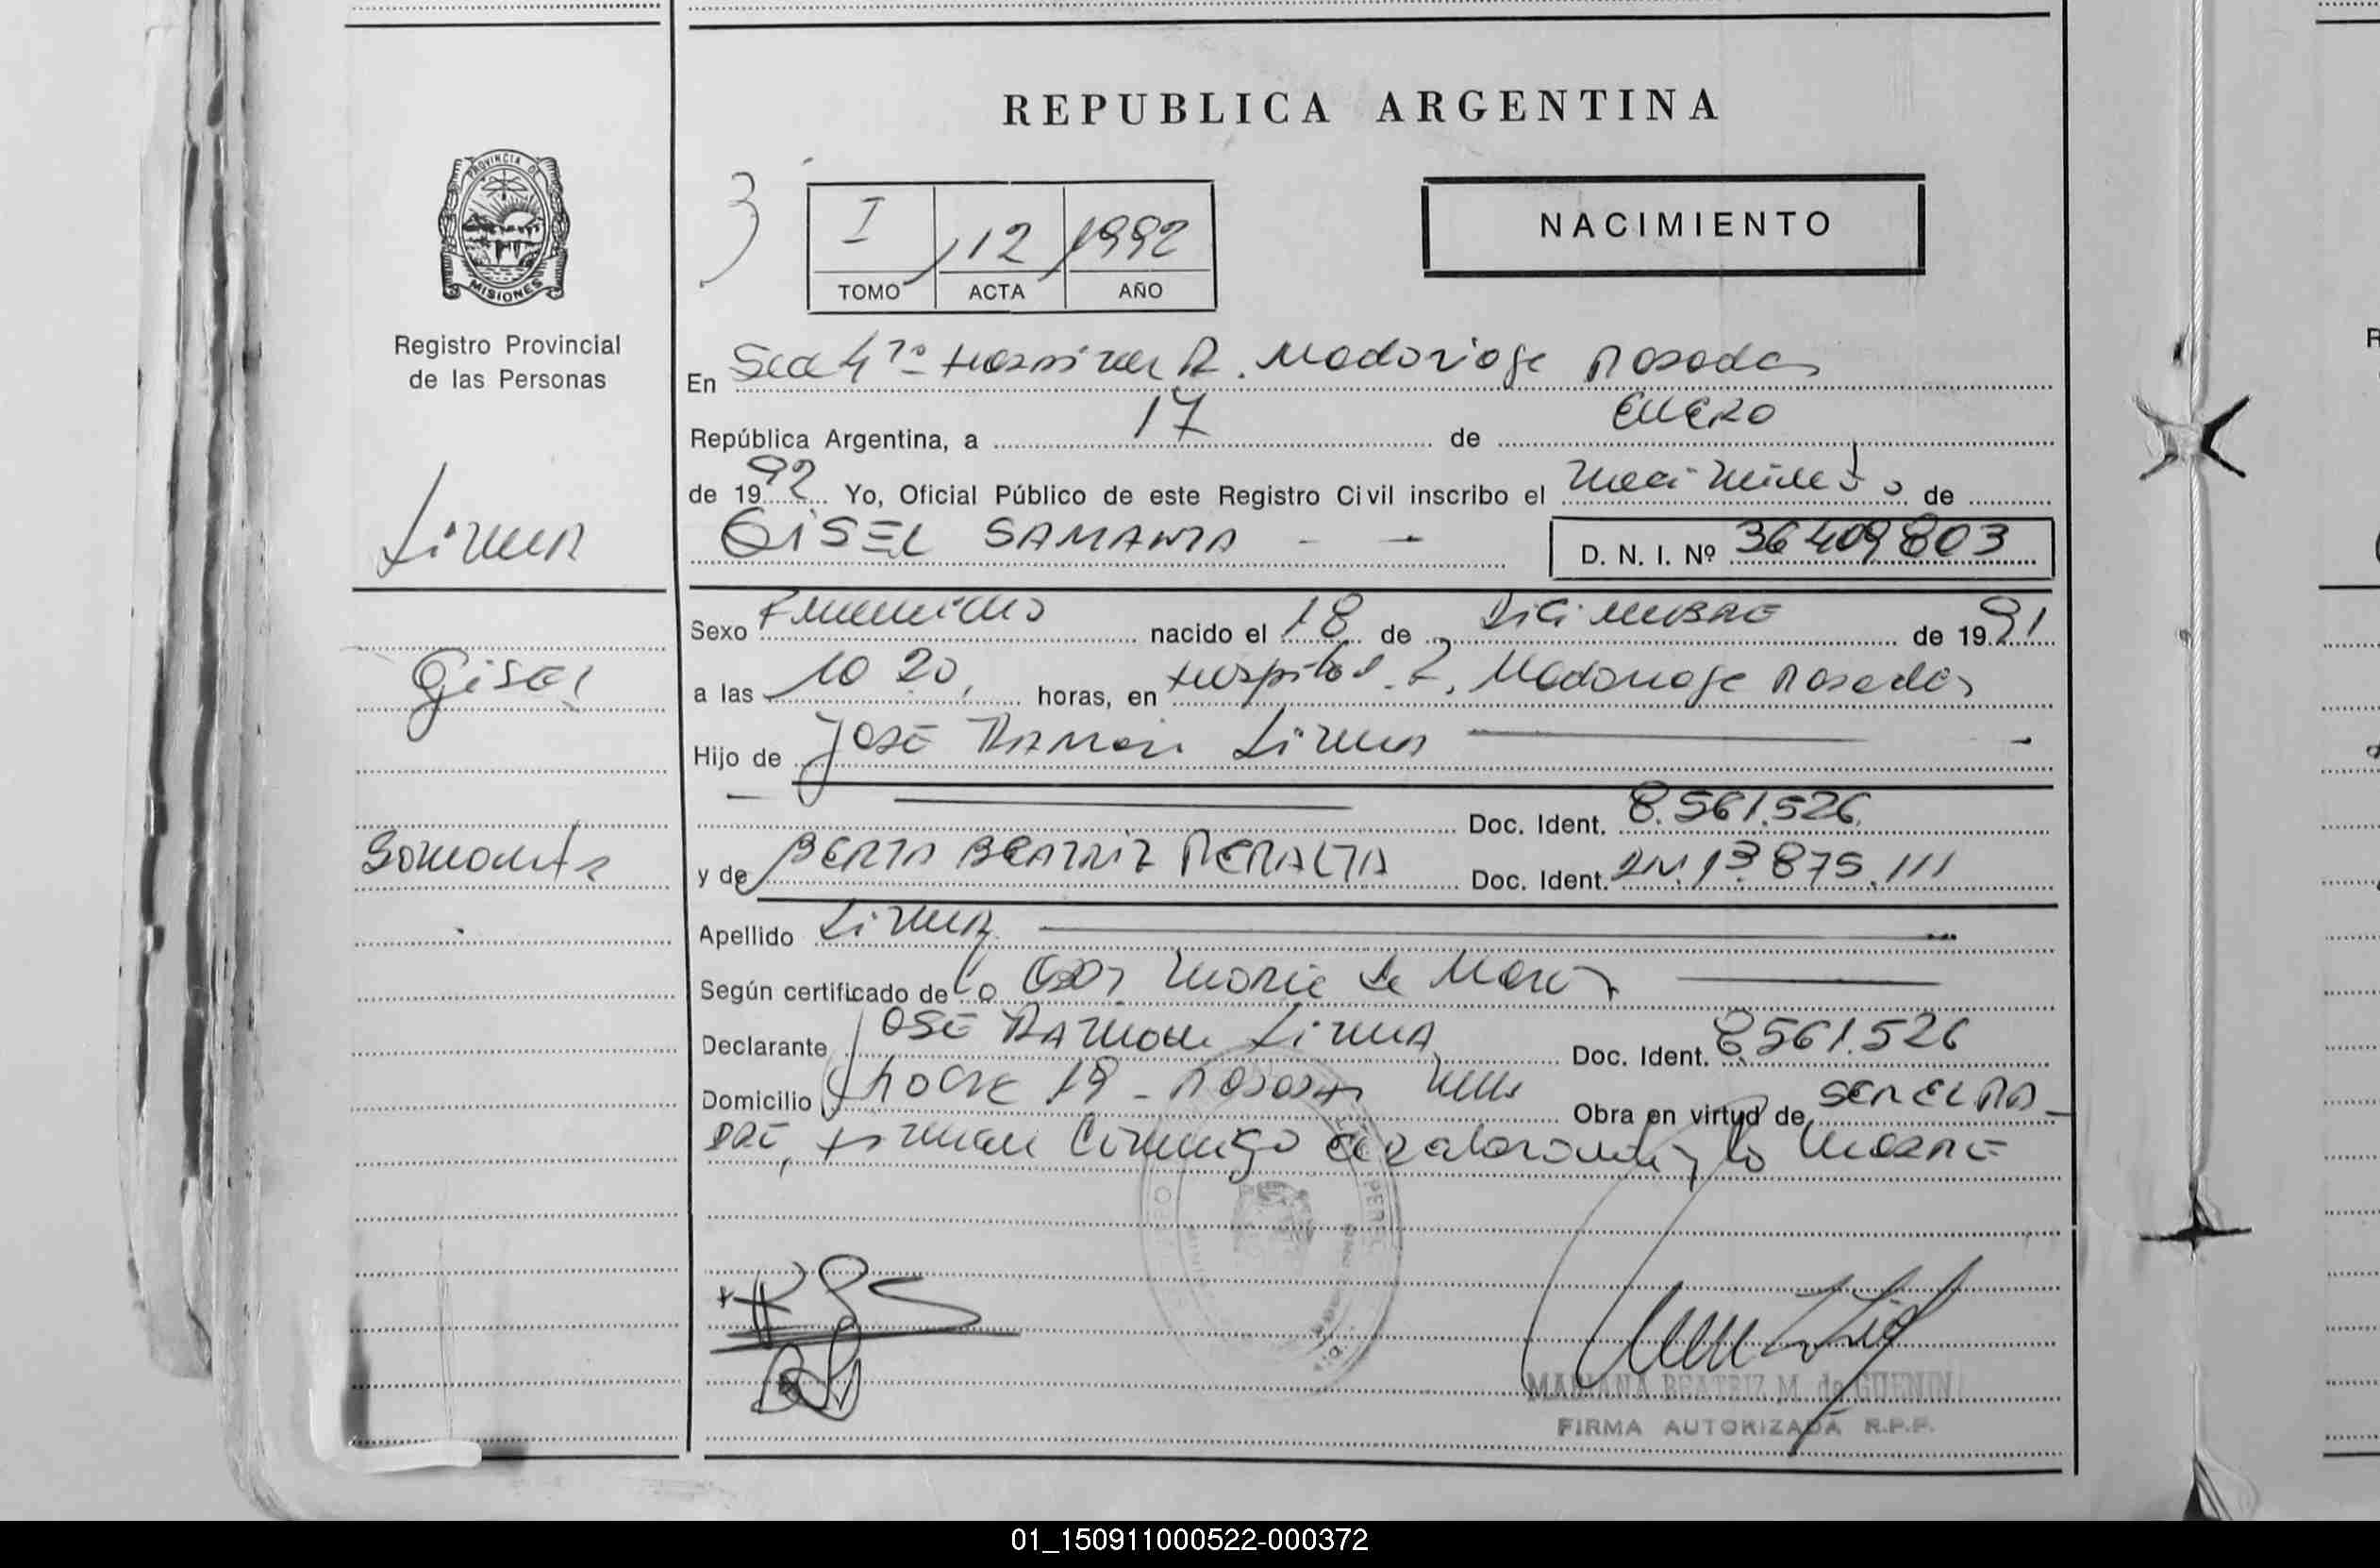 REPUBLICA ARGENTINA
PROVINCIA DE MISIONES
3
I 112 1992
TOMO ACTA AÑO
NACIMIENTO
Registro Provincial
de las Personas
Gisel
Samanta
En Sec 4ta Hospital R. Madariaga Posadas
República Argentina, a 17 de ENERO
de 1992 Yo, Oficial Público de este Registro Civil inscribo el nacimiento de
GISEL SAMANTA - - D. N. I. Nº 36409803
Sexo Femenino nacido el 18 de DiCiEMBRE de 1991
a las 10 20, horas, en Hospital R. Madariaga Posadas
Hijo de JOSÉ RAMON
Doc. Ident. 8.561.526
y de BERTA BEATRIZ PERALTA Doc. Ident. DN. 13.875.111
Apellido
Según certificado de la
Declarante JOSÉ RAMON Doc. Ident. 8561.526
Domicilio 19 - Obra en virtud de SER EL PA-
DRE, firman conmigo declarante y la MADRE
MARIANA BEATRIZ M. de GUENIN
FIRMA AUTORIZADA R.P.P.
01_150911000522-000372